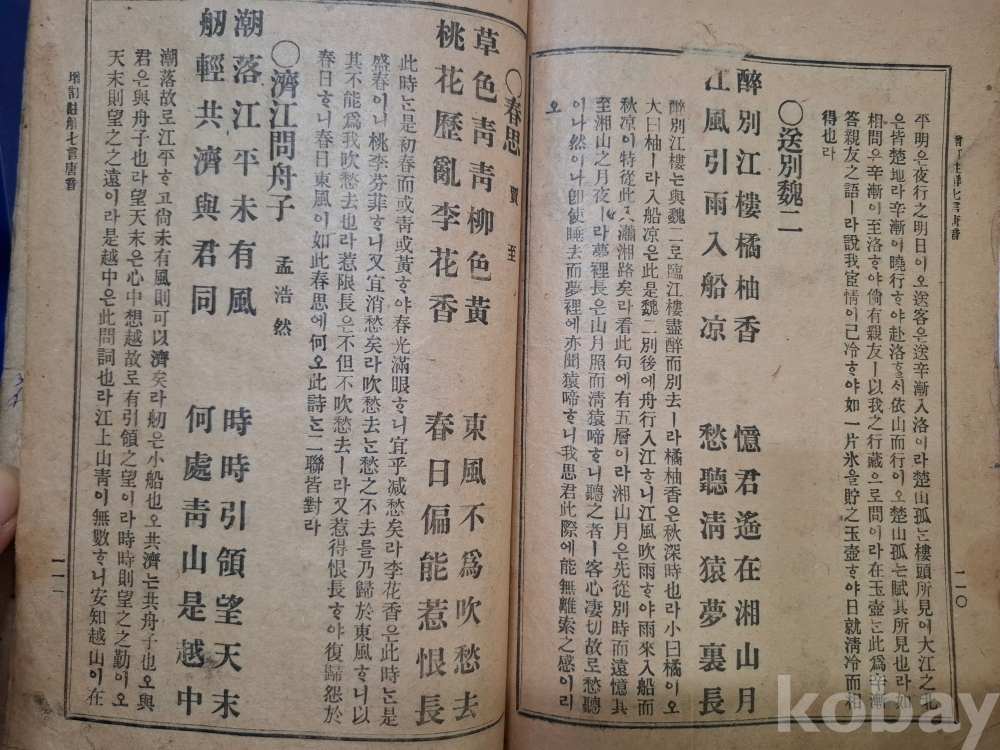 平明은夜行之明日이오送客은送辛漸入洛이라楚山孤는樓頭所見에大江之北
은皆楚地라辛漸이曉行ᄒᆞ야赴洛ᄒᆞᆯᄉᆡ依山而行이오楚山孤는賦其所見也라如
相問은辛漸이至洛ᄒᆞ야倘有親友ㅣ以我之行藏으로問이라在玉壺는此爲辛漸
答親友之語ㅣ라說我宦情이已冷ᄒᆞ야如一片氷을貯之玉壺ᄒᆞ야日就淸冷而相
得也라
〇送別魏二
醉別江樓橘柚香
江風引雨入船凉
憶君遙在湘山月
愁聽淸猿夢裏長
醉別江樓는與魏二로臨江樓盡醉而別去ㅣ라橘柚香은秋深時也라小曰橘이오
大曰柚ㅣ라入船凉은此是魏二別後에舟行入江ᄒᆞ니江風吹雨ᄒᆞ야雨來入船而
秋凉이特從此入瀟湘路矣라看此句에有五層이라湘山月은先從別時而遠憶其
至湘山之月夜ㅣ라夢裡長은山月照而淸猿啼ᄒᆞ니聽之者ㅣ客心凄切故로愁聽
이나然이나卽使睡去而夢裡에亦聞猿啼ᄒᆞ니我思君此際에能無離索之感이리
오
一一〇
〇春思 賈至
草色靑靑柳色黃
桃花歷亂李花香
東風不爲吹愁去
春日偏能惹恨長
此時는是初春而或靑或黃ᄒᆞ야春光滿眼ᄒᆞ니宜乎减愁矣라李花香은此時는是
盛春이니桃李芬菲ᄒᆞ니又宜消愁矣라吹愁去는愁之不去를乃歸於東風ᄒᆞ니以
其不能爲我吹愁去也라惹限長은不但不吹愁去ㅣ라又惹得恨長ᄒᆞ야復歸怨於
春日ᄒᆞ니春日東風이如此春思에何오此詩는二聯皆對라
〇濟江問舟子 孟浩然
潮落江平未有風
舠輕共濟與君同
時時引領望天末
何處靑山是越中
潮落故로江平ᄒᆞ고尙未有風則可以濟矣라舠은小船也오共濟는共舟子也오與
君은與舟子也라望天末은心中想越故로有引領之望이라時時則望之之勤이오
天末則望之之遠이라是越中은此問詞也라江上山靑이無數ᄒᆞ니安知越山이在
增訂註解七言唐音
一一一
kobay